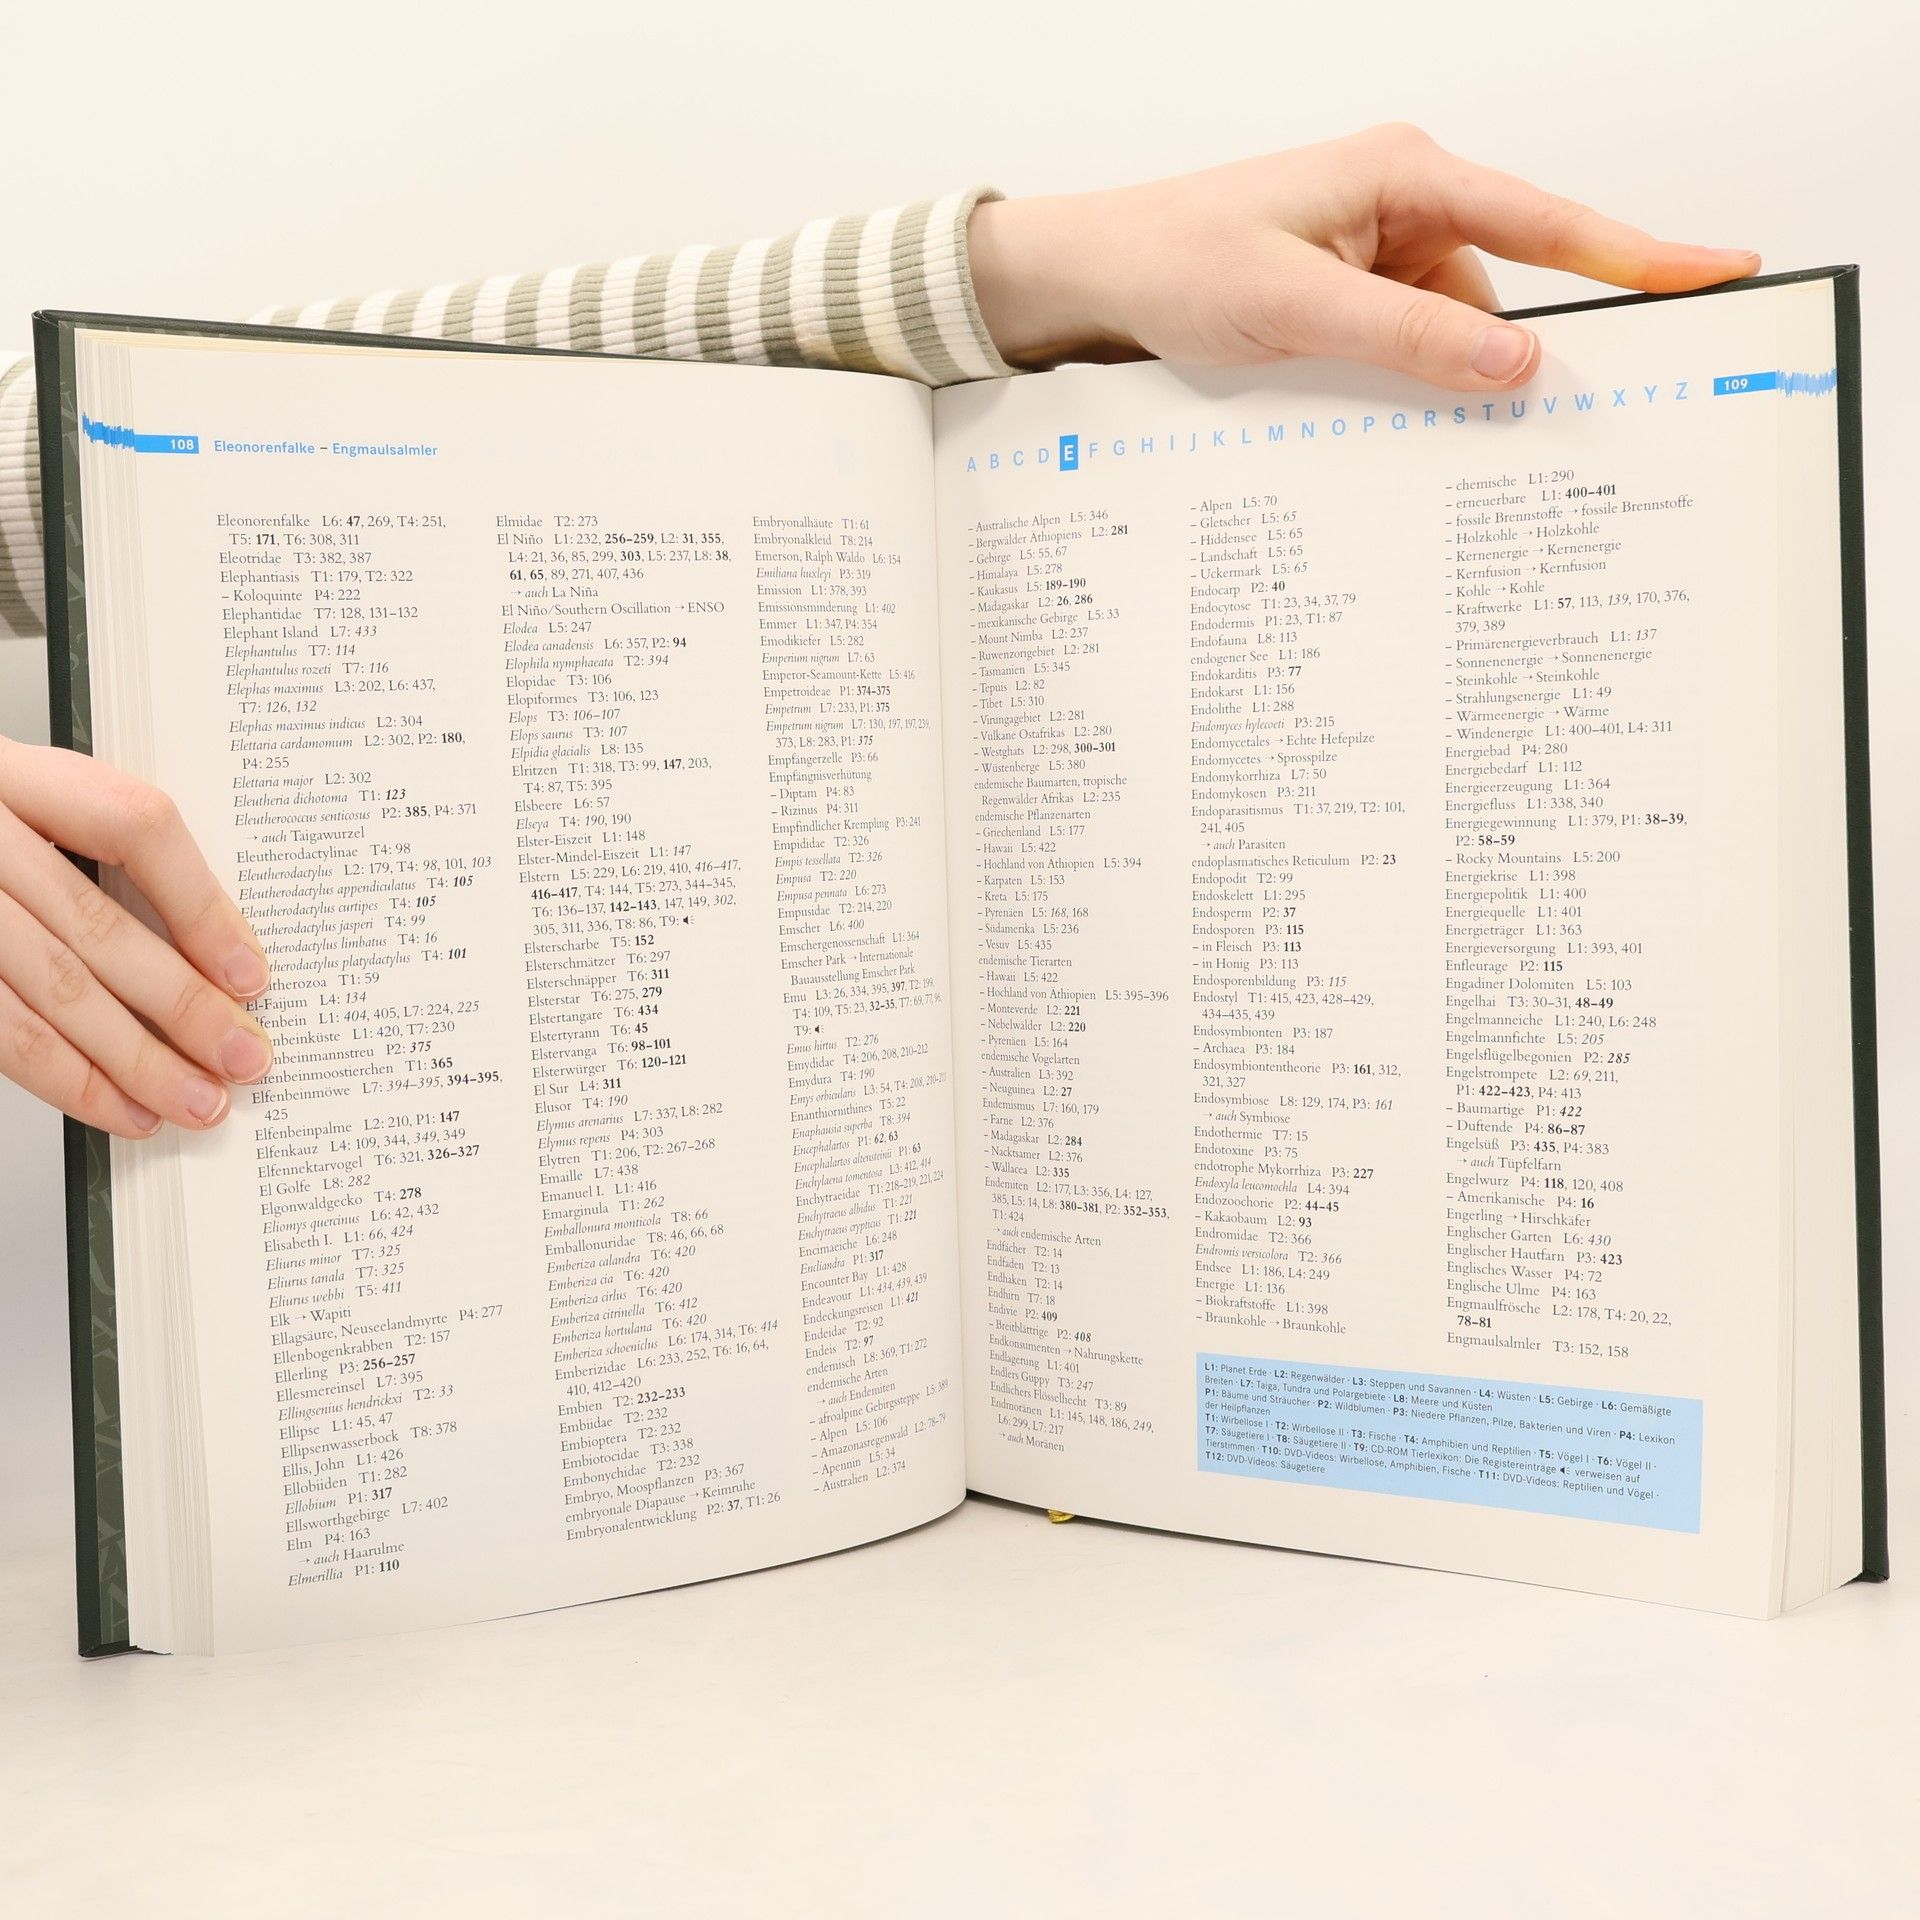 108 Eleonorenfalke – Engmaulsalmler
Eleonorenfalke L6: 47, 269, T4: 251,
T5: 171, T6: 308, 311
Eleotridae T3: 382, 387
Elephantiasis T1: 179, T2: 322
– Koloquinte P4: 222
Elephantidae T7: 128, 131–132
Elephant Island L7: 433
Elephantulus T7: 114
Elephantulus rozeti T7: 116
Elephas maximus L3: 202, L6: 437,
T7: 126, 132
Elephas maximus indicus L2: 304
Elettaria cardamomum L2: 302, P2: 180,
P4: 255
Elettaria major L2: 302
Eleutheria dichotoma T1: 123
Eleutherococcus senticosus P2: 385, P4: 371
→ auch Taigawurzel
Eleutherodactylinae T4: 98
Eleutherodactylus L2: 179, T4: 98, 101, 103
Eleutherodactylus appendiculatus T4: 105
Eleutherodactylus curtipes T4: 105
leutherodactylus jasperi T4: 99
utherodactylus limbatus T4: 16
therodactylus platydactylus T4: 101
utherozoa T1: 59
El-Faijum L4: 134
lfenbein L1: 404, 405, L7: 224, 225
nbeinküste L1: 420, T7: 230
nbeinmannstreu P2: 375
lfenbeinmoostierchen T1: 365
Elfenbeinmöwe L7: 394–395, 394–395,
425
Elfenbeinpalme L2: 210, P1: 147
Elfenkauz L4: 109, 344, 349, 349
Elfennektarvogel T6: 321, 326–327
El Golfe L8: 282
Elgonwaldgecko T4: 278
Eliomys quercinus L6: 42, 432
Elisabeth I. L1: 66, 424
Eliurus minor T7: 325
Eliurus tanala T7: 325
Eliurus webbi T5: 411
Elk → Wapiti
Ellagsäure, Neuseelandmyrte P4: 277
Ellenbogenkrabben T2: 157
Ellerling P3: 256–257
Ellesmereinsel L7: 395
Ellingsenius hendrickxi T2: 33
Ellipse L1: 45, 47
Ellipsenwasserbock T8: 378
Ellis, John L1: 426
Ellobiiden T1: 282
Ellobium P1: 317
Ellsworthgebirge L7: 402
Elm P4: 163
→ auch Haarulme
Elmerillia P1: 110
Elmidae T2: 273
El Niño L1: 232, 256–259, L2: 31, 355,
L4: 21, 36, 85, 299, 303, L5: 237, L8: 38,
61, 65, 89, 271, 407, 436
→ auch La Niña
El Niño/Southern Oscillation → ENSO
Elodea L5: 247
Elodea canadensis L6: 357, P2: 94
Elophila nymphaeata T2: 394
Elopidae T3: 106
Elopiformes T3: 106, 123
Elops T3: 106–107
Elops saurus T3: 107
Elpidia glacialis L8: 135
Elritzen T1: 318, T3: 99, 147, 203,
T4: 87, T5: 395
Elsbeere L6: 57
Elseya T4: 190, 190
Elster-Eiszeit L1: 148
Elster-Mindel-Eiszeit L1: 147
Elstern L5: 229, L6: 219, 410, 416–417,
416–417, T4: 144, T5: 273, 344–345,
T6: 136–137, 142–143, 147, 149, 302,
305, 311, 336, T8: 86, T9:
Elsterscharbe T5: 152
Elsterschmätzer T6: 297
Elsterschnäpper T6: 311
Elsterstar T6: 275, 279
Elstertangare T6: 434
Elstertyrann T6: 45
Elstervanga T6: 98–101
Elsterwürger T6: 120–121
El Sur L4: 311
Elusor T4: 190
Elymus arenarius L7: 337, L8: 282
Elymus repens P4: 303
Elytren T1: 206, T2: 267–268
Emaille L7: 438
Emanuel I. L1: 416
Emarginula T1: 262
Emballonura monticola T8: 66
Emballonuridae T8: 46, 66, 68
Emberiza calandra T6: 420
Emberiza cia T6: 420
Emberiza cirlus T6: 420
Emberiza citrinella T6: 412
Emberiza hortulana T6: 420
Emberiza schoeniclus L6: 174, 314, T6: 414
Emberizidae L6: 233, 252, T6: 16, 64,
410, 412–420
Embien T2: 232–233
Embiidae T2: 232
Embioptera T2: 232
Embiotocidae T3: 338
Embonychidae T2: 232
Embryo, Moospflanzen P3: 367
embryonale Diapause → Keimruhe
Embryonalentwicklung P2: 37, T1: 26
Embryonalhäute T1: 61
Embryonalkleid T8: 214
Emerson, Ralph Waldo L6: 154
Emiliana huxleyi P3: 319
Emission L1: 378, 393
Emissionsminderung L1: 402
Emmer L1: 347, P4: 354
Emodikiefer L5: 282
Emperium nigrum L7: 63
Emperor-Seamount-Kette L5: 416
Empetroideae P1: 374–375
Empetrum L7: 233, P1: 375
Empetrum nigrum L7: 130, 197, 197, 239,
373, L8: 283, P1: 375
Empfängerzelle P3: 66
Empfängnisverhütung
– Diptam P4: 83
– Rizinus P4: 311
Empfindlicher Krempling P3: 241
Empididae T2: 326
Empis tessellata T2: 326
Empusa T2: 220
Empusa pennata L6: 273
Empusidae T2: 214, 220
Emscher L6: 400
Emschergenossenschaft L1: 364
Emscher Park → Internationale
Bauausstellung Emscher Park
Emu L3: 26, 334, 395, 397, T2: 199,
T4: 109, T5: 23, 32–35, T7: 69, 77, 96,
T9:
Emus hirtus T2: 276
Emydidae T4: 206, 208, 210–212
Emydura T4: 190
Emys orbicularis L3: 54, T4: 208, 210–211
Enanthiornithines T5: 22
Enaphausia superba T8: 394
Encephalartos P1: 62, 63
Encephalartos altensteinii P1: 63
Enchylaena tomentosa L3: 412, 414
Enchytraeidae T1: 218–219, 221, 224
Enchytraeus albidus T1: 221
Enchytraeus crypticus T1: 221
Encimaeiche L6: 248
Encliandra P1: 317
Encounter Bay L1: 428
Endeavour L1: 434, 439, 439
Endeckungsreisen L1: 421
Endeidae T2: 92
Endeis T2: 97
endemisch L8: 369, T1: 272
endemische Arten
→ auch Endemiten
– afroalpine Gebirgssteppe L5: 389
– Alpen L5: 106
– Amazonasregenwald L2: 78–79
– Apennin L5: 34
– Australien L2: 374
A B C D E F G H I J K L M N O P Q R S T U V W X Y Z 109
– Australische Alpen L5: 346
– Bergwälder Äthiopiens L2: 281
– Gebirge L5: 55, 67
– Himalaya L5: 278
– Kaukasus L5: 189–190
– Madagaskar L2: 26, 286
– mexikanische Gebirge L5: 33
– Mount Nimba L2: 237
– Ruwenzorigebiet L2: 281
– Tasmanien L5: 345
– Tepuis L2: 82
– Tibet L5: 310
– Virungagebiet L2: 281
– Vulkane Ostafrikas L2: 280
– Westghats L2: 298, 300–301
– Wüstenberge L5: 380
endemische Baumarten, tropische
Regenwälder Afrikas L2: 235
endemische Pflanzenarten
– Griechenland L5: 177
– Hawaii L5: 422
– Hochland von Äthiopien L5: 394
– Karpaten L5: 153
– Kreta L5: 175
– Pyrenäen L5: 168, 168
– Südamerika L5: 236
– Vesuv L5: 435
endemische Tierarten
– Hawaii L5: 422
– Hochland von Äthiopien L5: 395–396
– Monteverde L2: 221
– Nebelwälder L2: 220
– Pyrenäen L5: 164
endemische Vogelarten
– Australien L3: 392
– Neuguinea L2: 27
Endemismus L7: 160, 179
– Farne L2: 376
– Madagaskar L2: 284
– Nacktsamer L2: 376
– Wallacea L2: 335
Endemiten L2: 177, L3: 356, L4: 127,
385, L5: 14, L8: 380–381, P2: 352–353,
T1: 424
→ auch endemische Arten
Endfächer T2: 14
Endfaden T2: 13
Endhaken T2: 14
Endhirn T7: 18
Endivie P2: 409
– Breitblättrige P2: 408
Endkonsumenten → Nahrungskette
Endlagerung L1: 401
Endlers Guppy T3: 247
Endlichers Flösselhecht T3: 89
Endmoränen L1: 145, 148, 186, 249,
L6: 299, L7: 217
→ auch Moränen
– Alpen L5: 70
– Gletscher L5: 65
– Hiddensee L5: 65
– Landschaft L5: 65
– Uckermark L5: 65
Endocarp P2: 40
Endocytose T1: 23, 34, 37, 79
Endodermis P1: 23, T1: 87
Endofauna L8: 113
endogener See L1: 186
Endokarditis P3: 77
Endokarst L1: 156
Endolithe L1: 288
Endomyces hylecoeti P3: 215
Endomycetales → Echte Hefepilze
Endomycetes → Sprosspilze
Endomykorrhiza L7: 50
Endomykosen P3: 211
Endoparasitismus T1: 37, 219, T2: 101,
241, 405
→ auch Parasiten
endoplasmatisches Reticulum P2: 23
Endopodit T2: 99
Endoskelett L1: 295
Endosperm P2: 37
Endosporen P3: 115
– in Fleisch P3: 113
– in Honig P3: 113
Endosporenbildung P3: 115
Endostyl T1: 415, 423, 428–429,
434–435, 439
Endosymbionten P3: 187
– Archaea P3: 184
Endosymbiontentheorie P3: 161, 312,
321, 327
Endosymbiose L8: 129, 174, P3: 161
→ auch Symbiose
Endothermie T7: 15
Endotoxine P3: 75
endotrophe Mykorrhiza P3: 227
Endoxyla leucomochla L4: 394
Endozoochorie P2: 44–45
– Kakaobaum L2: 93
Endromidae T2: 366
Endromis versicolora T2: 366
Endsee L1: 186, L4: 249
Energie L1: 136
– Biokraftstoffe L1: 398
– Braunkohle → Braunkohle
– chemische L1: 290
– erneuerbare L1: 400–401
– fossile Brennstoffe → fossile Brennstoffe
– Holzkohle → Holzkohle
– Kernenergie → Kernenergie
– Kernfusion → Kernfusion
– Kohle → Kohle
– Kraftwerke L1: 57, 113, 139, 170, 376,
379, 389
– Primärenergieverbrauch L1: 137
– Sonnenenergie → Sonnenenergie
– Steinkohle → Steinkohle
– Strahlungsenergie L1: 49
– Wärmeenergie → Wärme
– Windenergie L1: 400–401, L4: 311
Energiebad P4: 280
Energiebedarf L1: 112
Energieerzeugung L1: 364
Energiefluss L1: 338, 340
Energiegewinnung L1: 379, P1: 38–39,
P2: 58–59
– Rocky Mountains L5: 200
Energiekrise L1: 398
Energiepolitik L1: 400
Energiequelle L1: 401
Energieträger L1: 363
Energieversorgung L1: 393, 401
Enfleurage P2: 115
Engadiner Dolomiten L5: 103
Engelhai T3: 30–31, 48–49
Engelmanneiche L1: 240, L6: 248
Engelmannfichte L5: 205
Engelsflügelbegonien P2: 285
Engelstrompete L2: 69, 211,
P1: 422–423, P4: 413
– Baumartige P1: 422
– Duftende P4: 86–87
Engelsüß P3: 435, P4: 383
→ auch Tüpfelfarn
Engelwurz P4: 118, 120, 408
– Amerikanische P4: 16
Engerling → Hirschkäfer
Englischer Garten L6: 430
Englischer Hautfarn P3: 423
Englisches Wasser P4: 72
Englische Ulme P4: 163
Engmaulfrösche L2: 178, T4: 20, 22,
78–81
Engmaulsalmler T3: 152, 158
L1: Planet Erde · L2: Regenwälder · L3: Steppen und Savannen · L4: Wüsten · L5: Gebirge · L6: Gemäßigte
Breiten · L7: Taiga, Tundra und Polargebiete · L8: Meere und Küsten
P1: Bäume und Sträucher · P2: Wildblumen · P3: Niedere Pflanzen, Pilze, Bakterien und Viren · P4: Lexikon
der Heilpflanzen
T1: Wirbellose I · T2: Wirbellose II · T3: Fische · T4: Amphibien und Reptilien · T5: Vögel I · T6: Vögel II ·
T7: Säugetiere I · T8: Säugetiere II · T9: CD-ROM Tierlexikon: Die Registereinträge verweisen auf
Tierstimmen · T10: DVD-Videos: Wirbellose, Amphibien, Fische · T11: DVD-Videos: Reptilien und Vögel ·
T12: DVD-Videos: Säugetiere